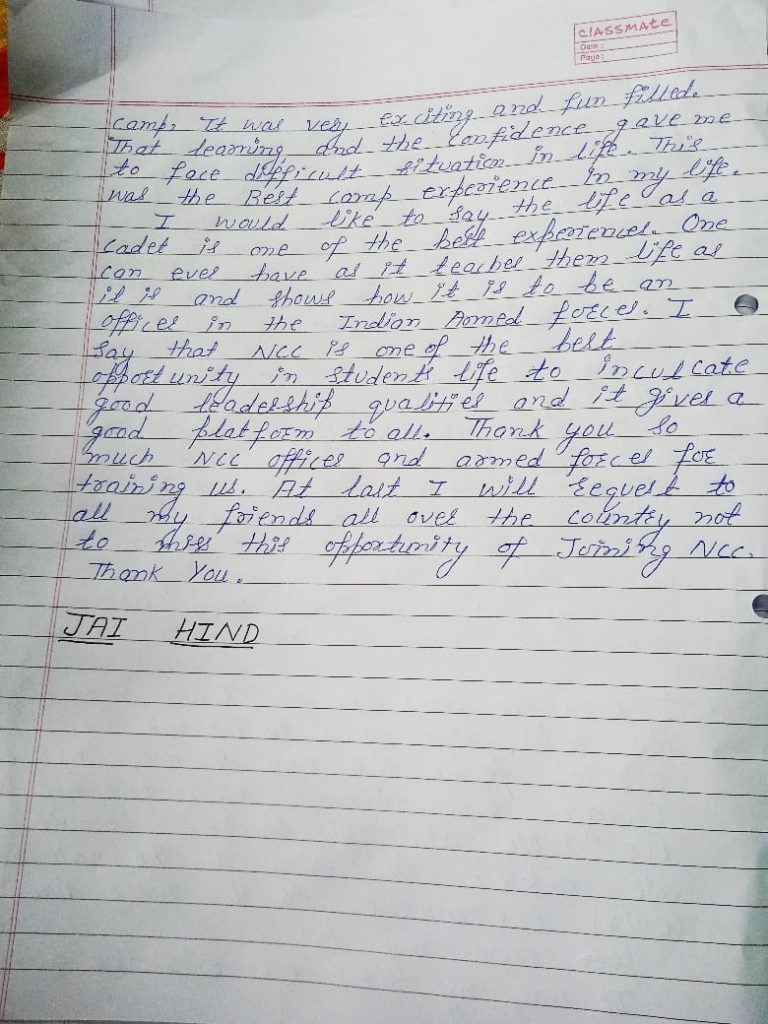 CLASSMATE
Date :
Page :
camp, It was very exciting and fun filled.
That learning and the confidence gave me
to face difficult situation in life. This
was the Best camp experience in my life.
I would like to say the life as a
cadet is one of the best experiences. One
can ever have as it teaches them life as
it is and shows how it is to be an
officer in the Indian Armed forces. I
say that NCC is one of the best
opportunity in students life to inculcate
good leadership qualities and it gives a
good platform to all. Thank you so
much NCC officer and armed forces for
training us. At last I will request to
all my friends all over the country not
to miss this opportunity of Joining NCC.
Thank You.
JAI HIND